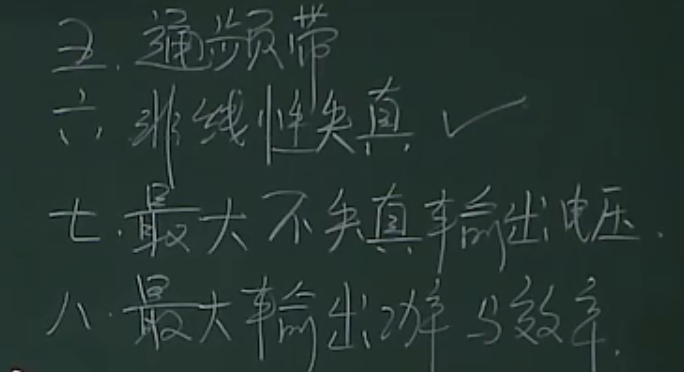 五.通频带
六.非线性失真 ✓
七.最大不失真输出电压.
八.最大输出功率与效率.